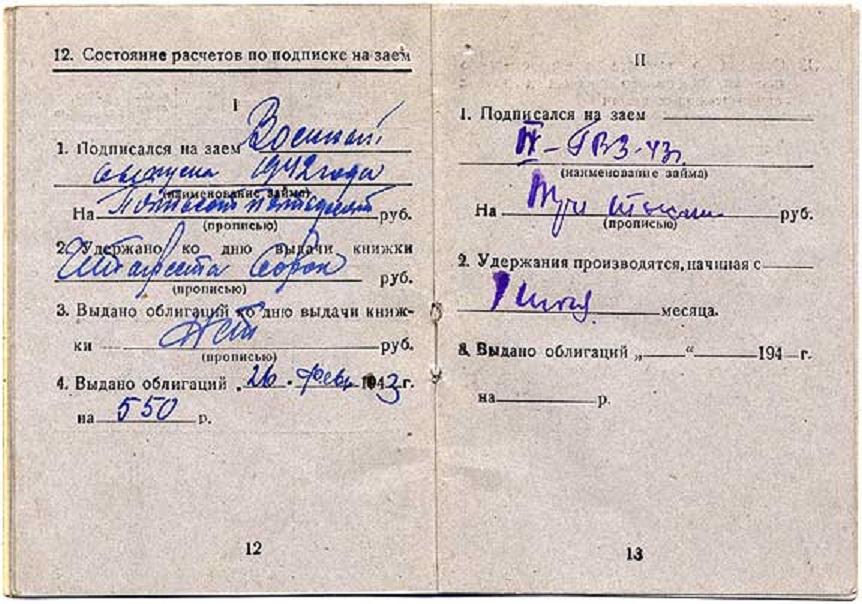 12. Состояние расчетов по подписке на заем
I
1. Подписался на заем Военный
выпуска 1942 года
(наименование займа)
На Пятьсот пятьдесят руб.
(прописью)
2. Удержано ко дню выдачи книжки
сорок руб.
(прописью)
3. Выдано облигаций ко дню выдачи книж-
ки Нет руб.
(прописью)
4. Выдано облигаций „26. февр 1943 г.
на 550 р.
12
II
1. Подписался на заем
II-ГВЗ-43г
(наименование займа)
На Три тысячи руб.
(прописью)
2. Удержания производятся, начиная с
месяца.
3. Выдано облигаций „ “ 194 г.
на р.
13